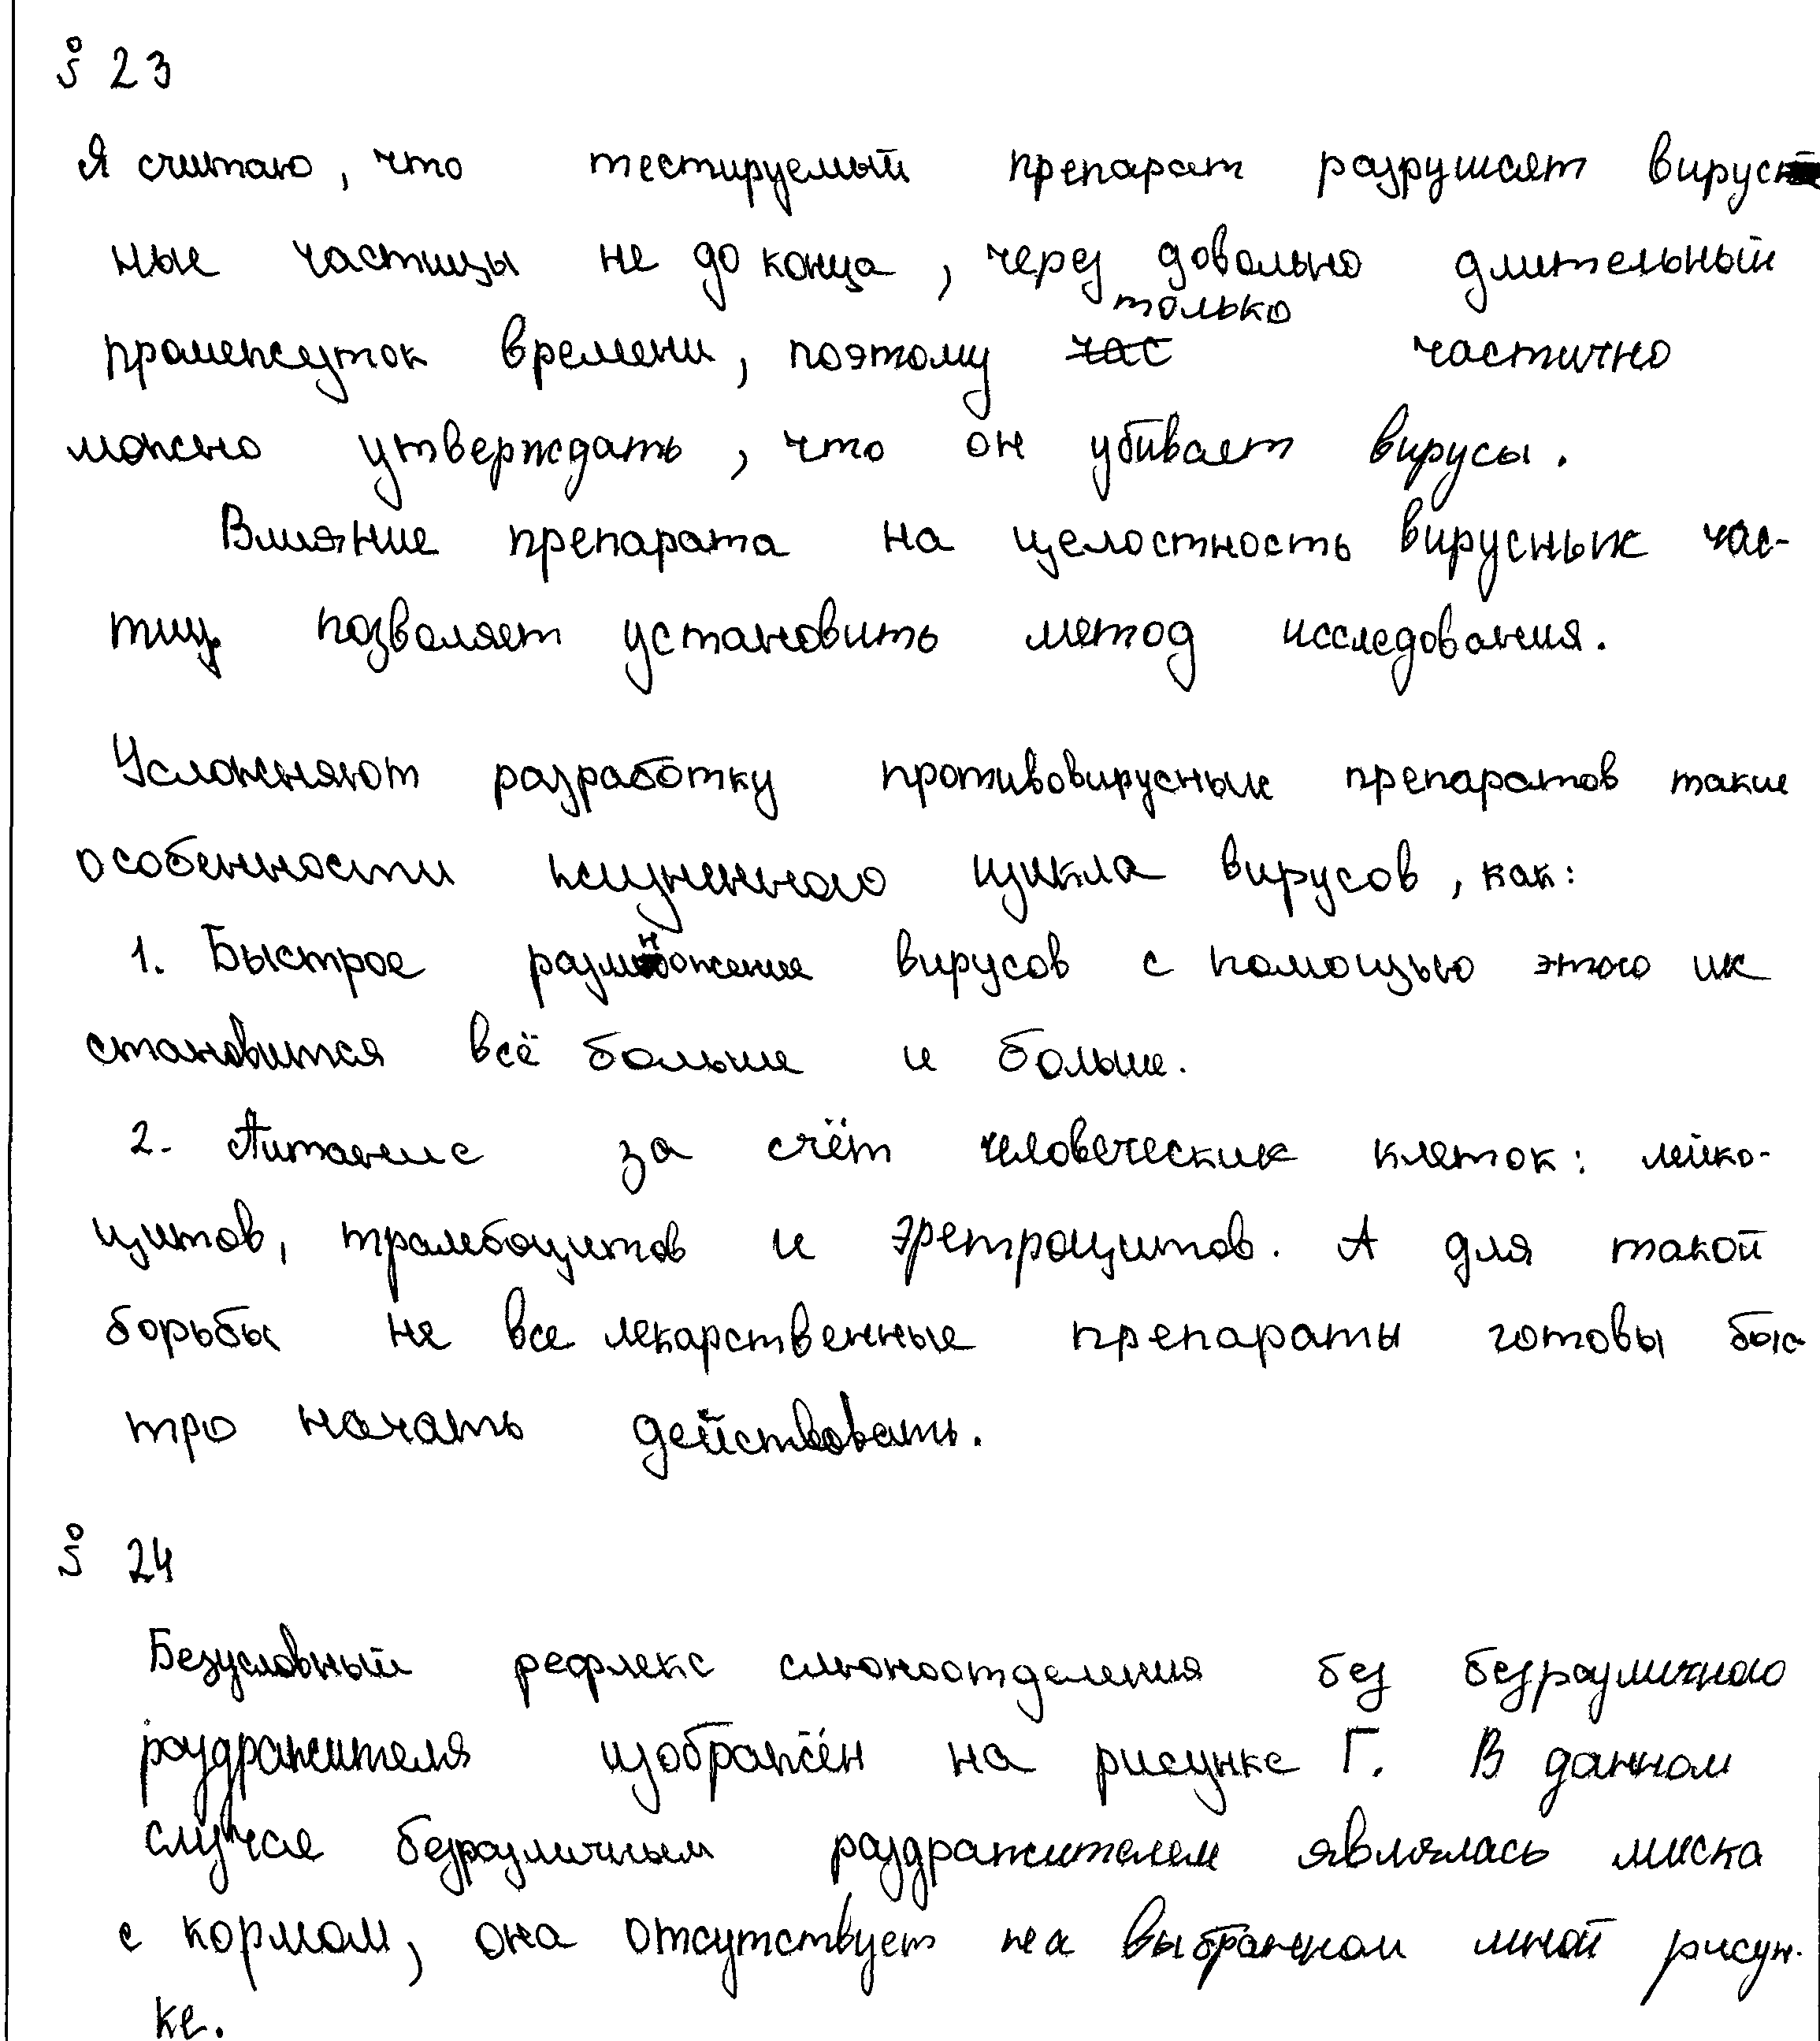 § 23
Я считаю, что тестируемый препарат разрушает вирус
ные частицы не до конца, через довольно длительный
только
промежуток времени, поэтому час частично
можно утверждать, что он убивает вирусы.
Влияние препарата на целостность вирусных час-
тиц позволяет установить метод исследования.
Усложняют разработку противовирусных препаратов такие
особенности жизненного цикла вирусов, как:
1. Быстрое размножение вирусов с помощью этого их
становится всё больше и больше.
2. Питание за счёт человеческих клеток: лейко-
цитов, тромбоцитов и эретроцитов. А для такой
борьбы не все лекарственные препараты готовы быс
тро начать действовать.
§ 24
Безусловный рефлекс слюноотделения без безразличного
раздражителя изображён на рисунке Г. В данном
случае безразличным раздражителем являлась миска
с кормом, она отсутствует на выбранном мной рисун-
ке.